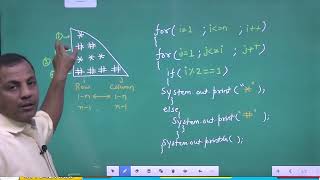 ①→ *
# #
③ * * *
# # # #
Row Column
i j
1-n ⟷ 1-n
n-1 n-1
for(i=1 ; i<=n ; i++)
{
for(j=1; j<=i ; j++)
{
if(i%2==1)
{
System.out.print("*");
}
else
{
System.out.print("#");
}
}
System.out.println();
}